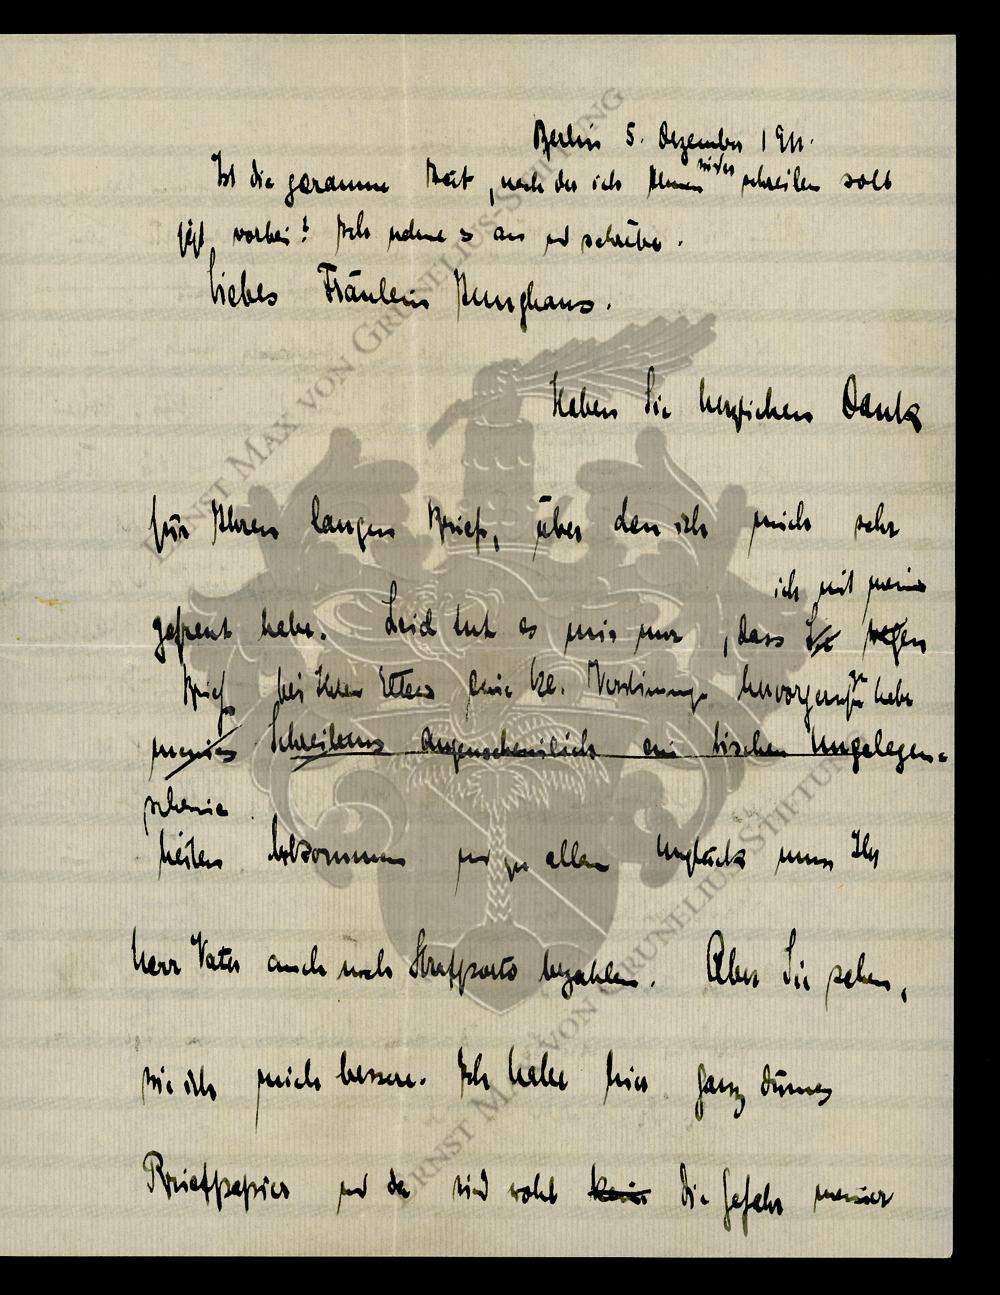 Berlin 5. Dezember 1911.
Ist die geraume Zeit, nach der ich Ihnen wieder schreiben soll
jetzt vorbei? Ich nehme es an und schreibe.
Liebes Fräulein Junghans.
Haben Sie herzlichen Dank
für Ihren langen Brief, über den ich mich sehr
ich mit meinem
gefreut habe. Leid tut es mir nur, dass Sie wegen
Brief bei Ihren Eltern eine Verstimmung hervorgerufen zu habe
meines Schreibens augenscheinlich ein bischen Ungelegen-
scheine
heiten bekommen und zu allem Unglück muss Ihr
Herr Vater auch noch Strafporto bezahlen. Aber Sie sehen,
wie ich mich bessere. Ich habe hier ganz dünnes
Briefpapier und da wird wohl keine die Gefahr meiner
ERNST MAX VON GRUNELIUS-STIFTUNG
ERNST MAX VON GRUNELIUS-STIFTUNG